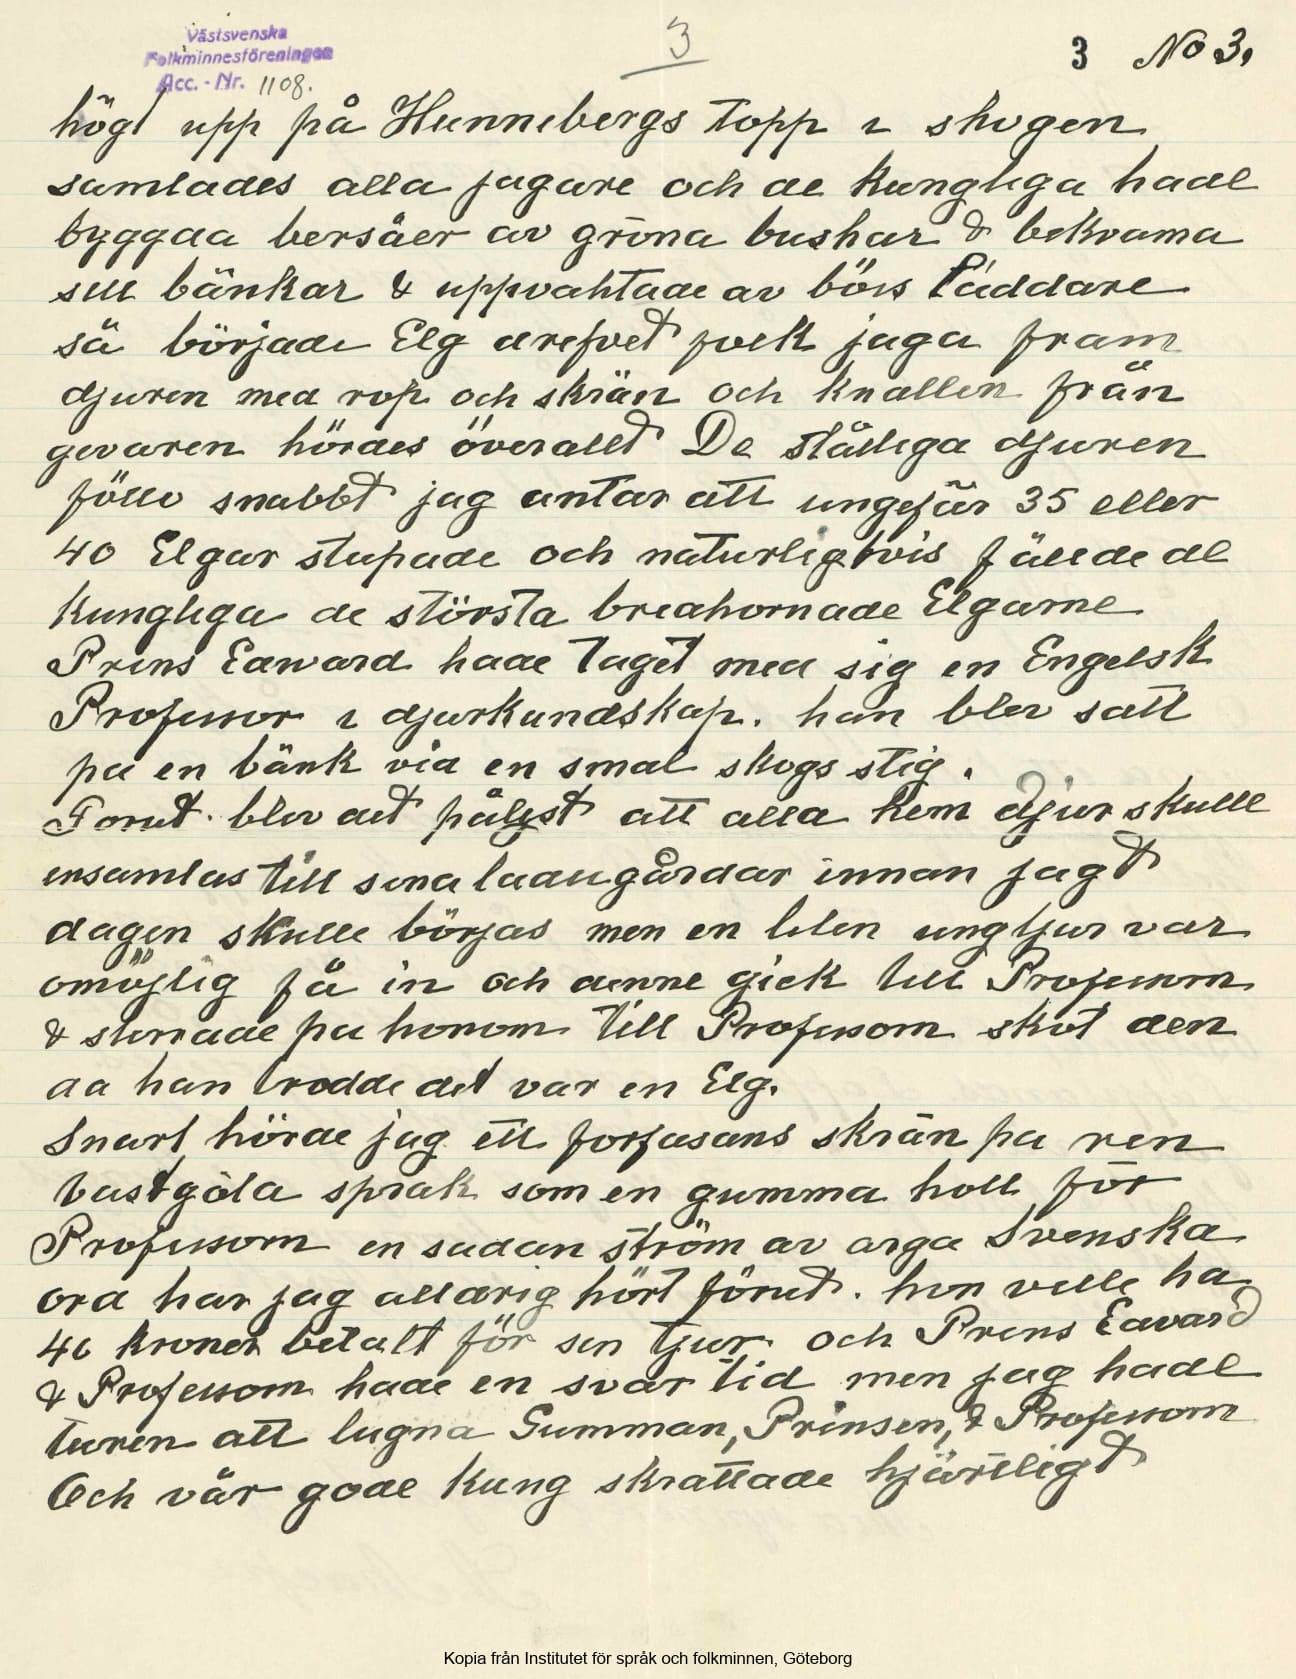 Västsvenska
Folkminnesföreningen
Acc. - Nr. 1108.
3
3 No 3.
högt upp på Hunnebergs topp i skogen
samlades alla jagare och de kungliga hade
byggda bersåer av gröna buskar & bekvama
sitt bänkar & uppvaktade av börs laddare
så började Elg drefvet folk jaga fram
djuren med rop och skrän och knallen från
gevaren hördes överallt De ståtliga djuren
föllo snabbt jag antar att ungefär 35 eller
40 Elgar stupade och naturligtvis fällde de
Kungliga de största bredhornade Elgarne
Prins Edward hade taget med sig en Engelsk
Professor i djurkundskap. han blev satt
pa en bänk vid en smal skogs stig.
Forut blev det pålyst att alla hem djur skulle
insamlas till sina ladugårdar innan jagt
dagen skulle börjas men en liten ungtjur var
omöjlig få in och denne gick till Professorn
& stirrade pa honom till Professorn skot den
da han trodde det var en Elg.
Snart hörde jag ett forfasans skrän pa ren
vastgöta sprak som en gumma holt för
Professorn en sadan ström av arga Svenska
ord har jag alldrig hört förut. hon ville ha
40 kroner betalt för sin tjur och Prins Edvard
& Professorn hade en svår tid men jag hade
turen att lugna Gumman, Prinsen, & Professorn
Och vår gode Kung skrattade hjärtligt
Kopia från Institutet för språk och folkminnen, Göteborg